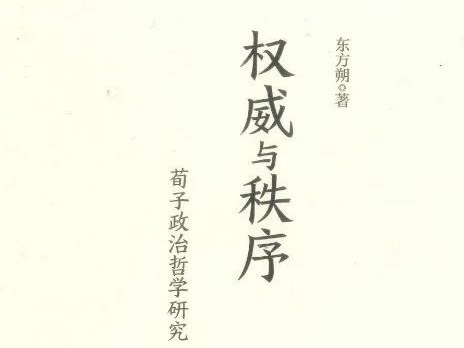 东方朔◎著
权威与秩序
荀子政治哲学研究